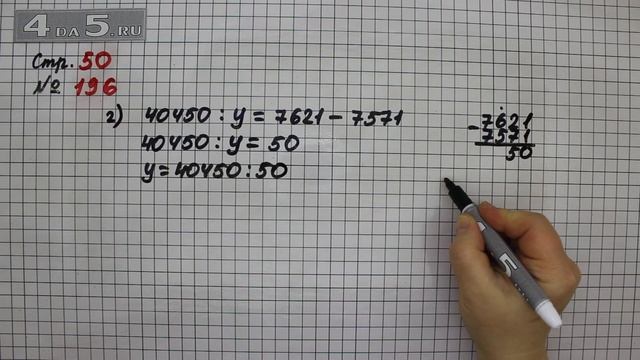 4 DA 5.RU
Стр. 50
№ 196
2) 40450 : y = 7621 - 7571
40450 : y = 50
y = 40450 : 50
- 7621
7571
50
5